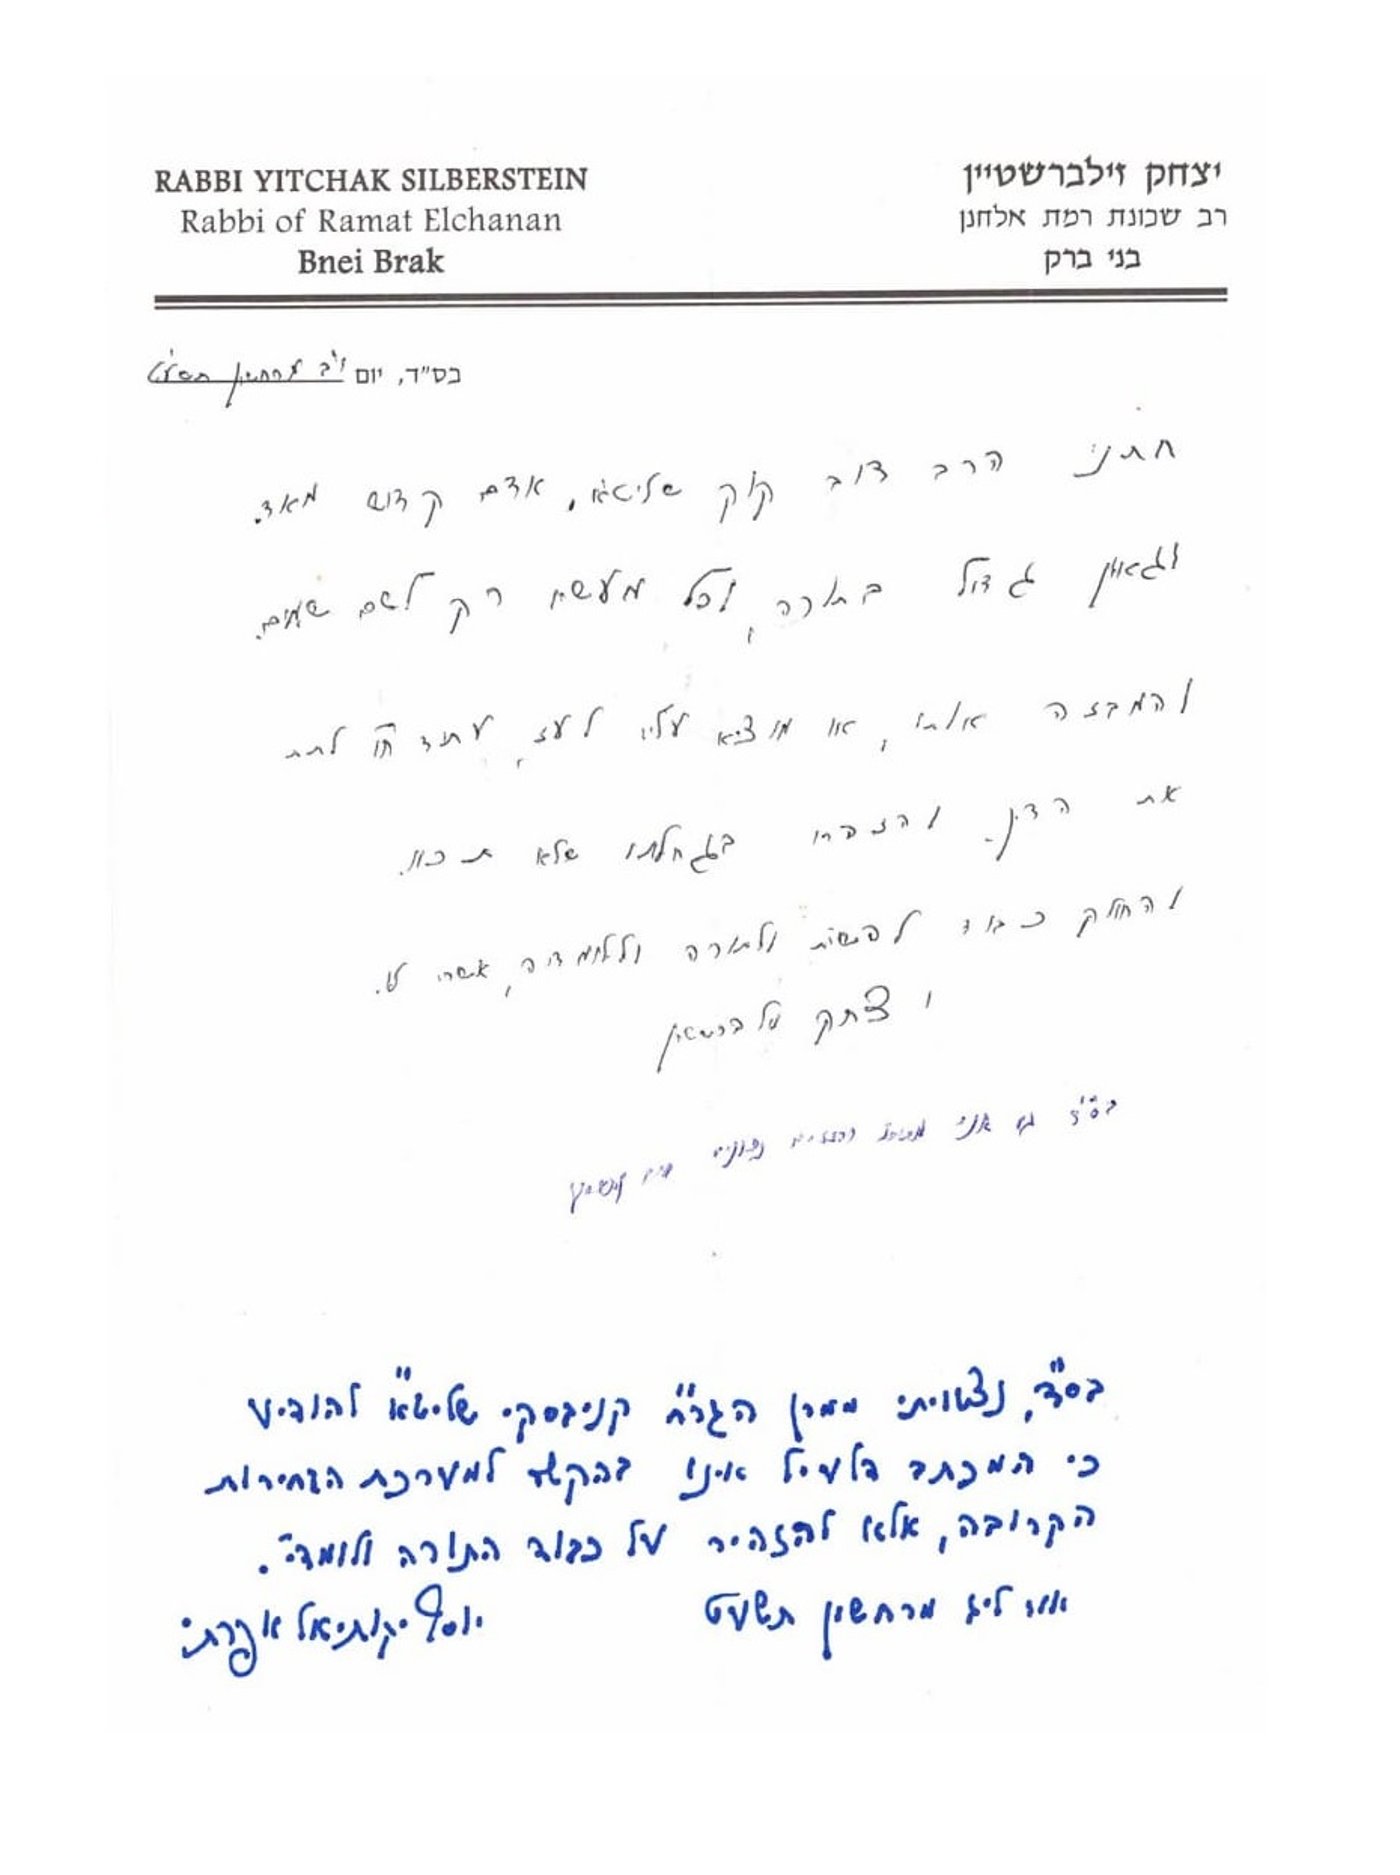 RABBI YITCHAK SILBERSTEIN
Rabbi of Ramat Elchanan
Bnei Brak
יצחק זילברשטיין
רב שכונת רמת אלחנן
בני ברק
בס"ד, יום י"ב מרחשון תשע"ט
חתני הרב דוב קוק שליט"א, אדם קדוש מאד.
וגאון גדול בתורה, וכל מעשיו רק לשם שמים.
והמבזה אותו, או מוציא עליו לעז, עתיד ח"ו לתת
את הדין. והזהרו בגחלתו שלא תכוו.
והחולק כבוד לקב"ה ולתורה וללומדיה, אשרי לו.
יצחק זילברשטיין
בס"ד גם אני מצטרף לדברים נכונים חיים קניבסקי
בס"ד, נצטויתי ממרן הגר"ח קניבסקי שליט"א להודיע
כי המכתב דלעיל אינו בהקשר למערכת הבחירות
הקרובה, אלא להזהיר על כבוד התורה ולומדי'.
אור לי"ג מרחשון תשע"ט
יוסף יקותיאל אפרתי